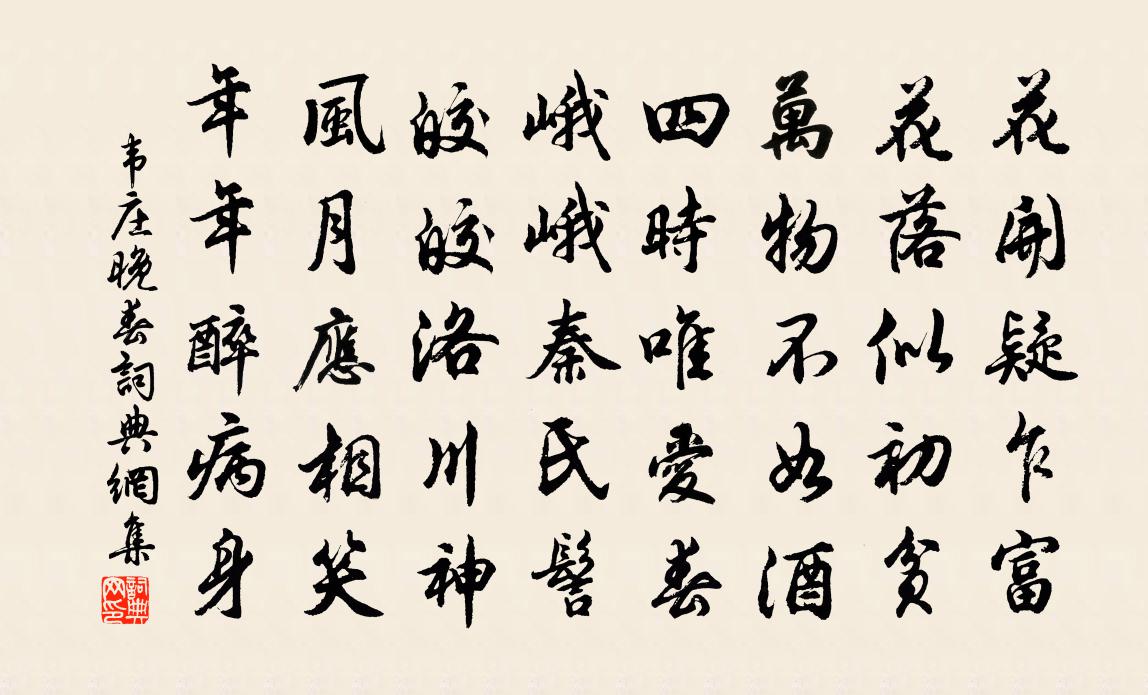 花開疑乍富
花落似初貧
萬物不如酒
四時唯愛春
峨峨秦氏髻
皎皎洛川神
風月應相笑
年年醉病身
韦庄晚春詞典網集
詞典网印